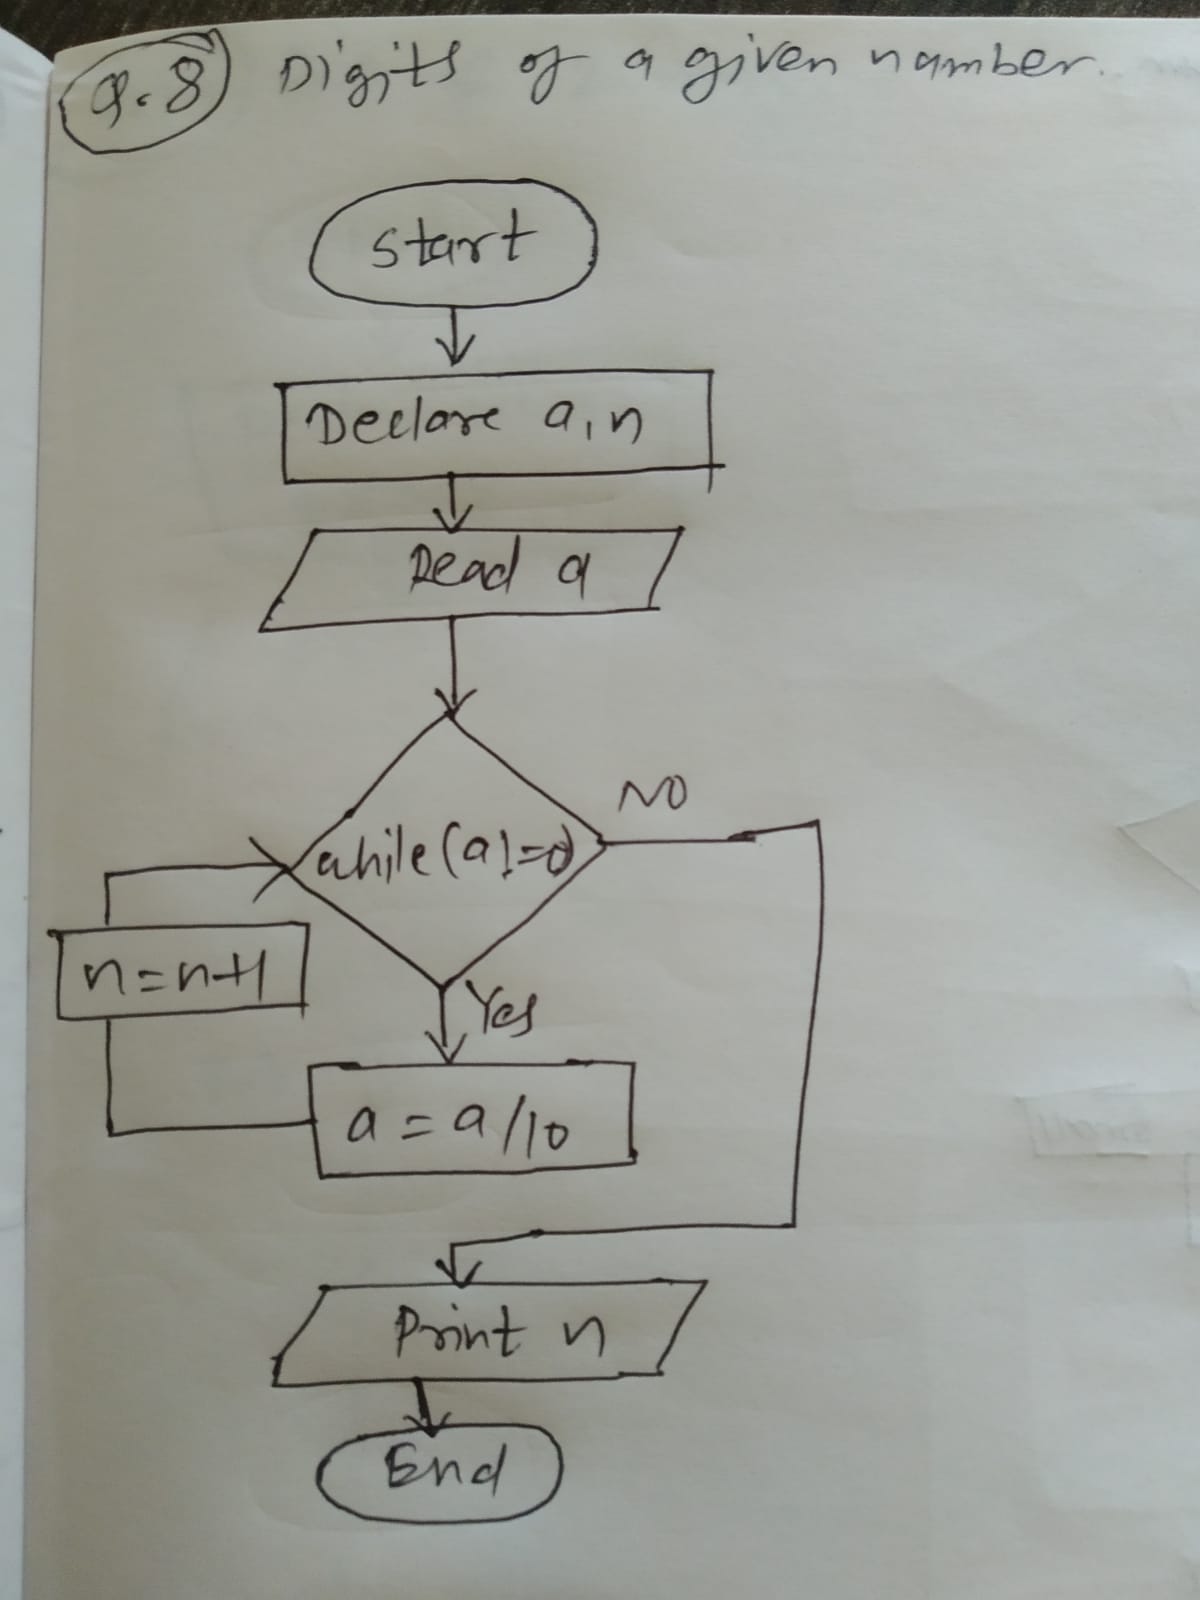 Q.8 Digits of a given number.
Start
Declare a, n
Read a
while(a!=0)
NO
n=n+1
Yes
a = a/10
Print n
End